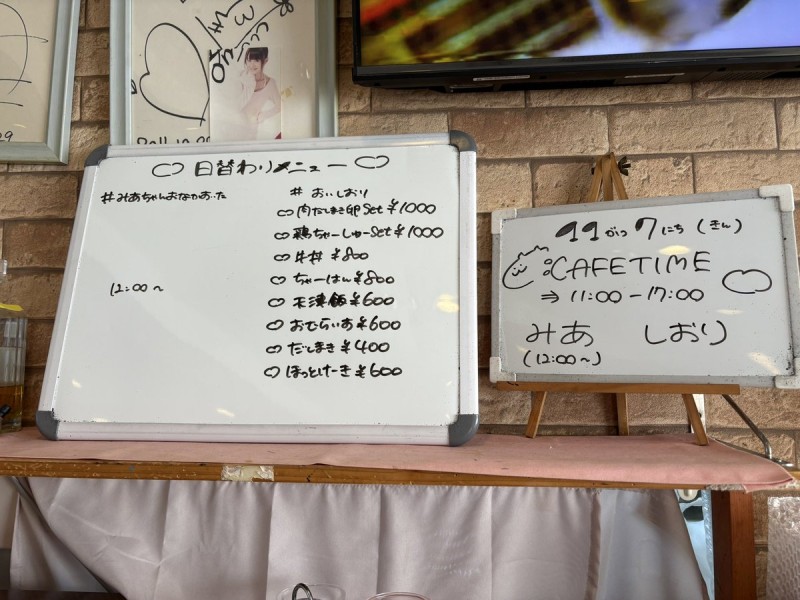 日替わりメニュー
#みあちゃんおなかあいた
12:00~
# おいしおり
肉だしまき卵Set ¥1000
鶏ちゃーしゅーSet ¥1000
牛丼 ¥800
ちゃーはん ¥800
天津飯 ¥600
おむらいす ¥600
だしまき ¥400
ほっとけーき ¥600
11がつ7にち(きん)
CAFETIME
⇒ 11:00-17:00
みあ しおり
(12:00~)